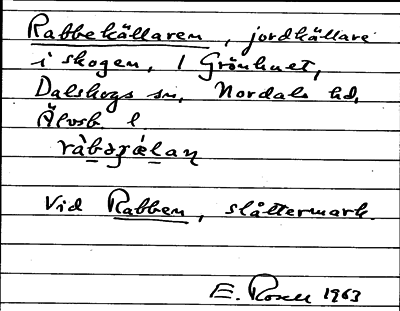 Rabbekällaren, jordkällare
i skogen, 1 Grönhuet,
Dalskogs sn, Nordals hd,
Älvsb. l
Vid Rabben, slåttermark.
E. Rosell 1963